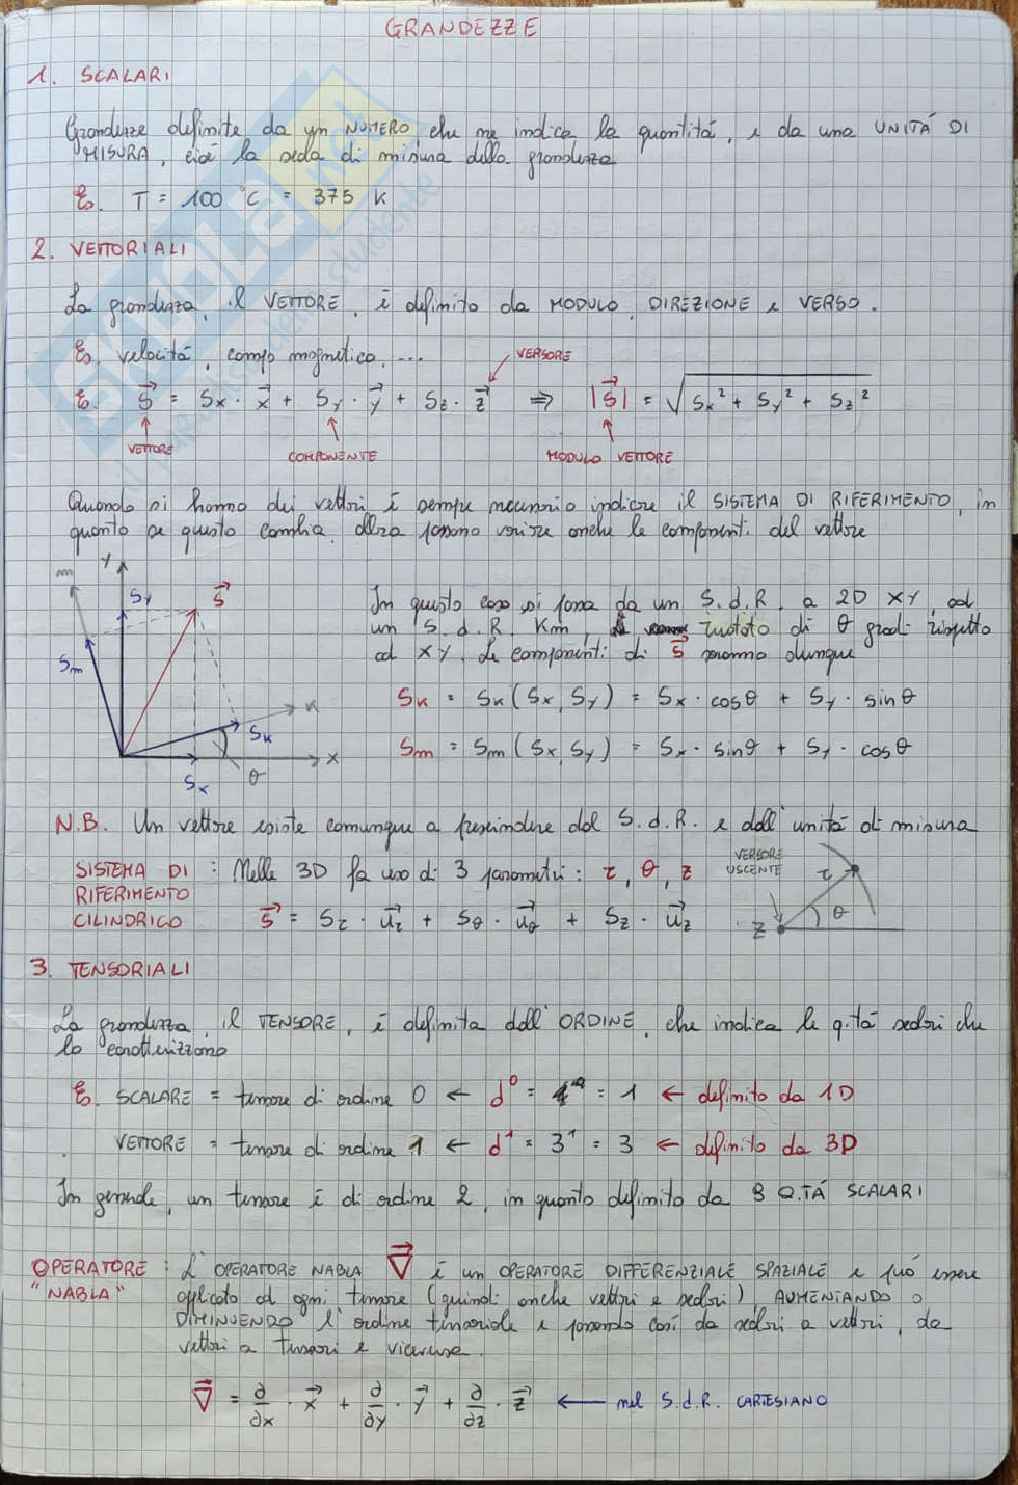 GRANDEZZE
1. SCALARI
Grandezze definite da un NUMERO che ne indica la quantitá, e da una UNITÁ DI
MISURA, cioé la scala di misura della grandezza
Es. T = 100 °C = 375 K
2. VETTORIALI
La grandezza, il VETTORE, é definito da MODULO, DIREZIONE e VERSO.
Es. velocitá, campo magnetico, ...
VERSORE
Es. S⃗ = Sx · x⃗ + Sy · y⃗ + Sz · z⃗ ⇒ |S⃗| = √(Sx² + Sy² + Sz²)
VETTORE COMPONENTE MODULO VETTORE
Quando si hanno dei vettori é sempre necessario indicare il SISTEMA DI RIFERIMENTO, in
quanto se questo cambia, allora possono variare anche le componenti del vettore
m Y Sy S⃗ Sm K Sk X Sx θ
In questo caso si passa da un S.d.R. a 2D XY, ad
un S.d.R. Km, ruotato di θ gradi rispetto
ad XY. Le componenti di S⃗ saranno dunque
Sk = Sk(Sx, Sy) = Sx · cosθ + Sy · sinθ
Sm = Sm(Sx, Sy) = Sx · sinθ + Sy · cosθ
N.B. Un vettore esiste comunque a prescindere dal S.d.R. e dall'unitá di misura
SISTEMA DI
RIFERIMENTO
CILINDRICO
: Nelle 3D fa uso di 3 parametri: r, θ, z
S⃗ = Sr · u⃗r + Sθ · u⃗θ + Sz · u⃗z
VERSORE
USCENTE
r θ Z
3. TENSORIALI
La grandezza, il TENSORE, é definita dall'ORDINE, che indica le q.tá scalari che
lo caratterizzano
Es. SCALARE = tensore di ordine 0 ← d⁰ = = 1 ← definito da 1D
VETTORE = tensore di ordine 1 ← d¹ = 3¹ = 3 ← definito da 3D
In generale, un tensore é di ordine 2, in quanto definito da Q.TÁ SCALARI
OPERATORE
"NABLA"
: L'OPERATORE NABLA ∇⃗ é un OPERATORE DIFFERENZIALE SPAZIALE e puó essere
applicato ad ogni tensore (quindi anche vettori e scalari), AUMENTANDO o
DIMINUENDO l'ordine tensoriale e passando cosí da scalari a vettori, da
vettori a tensori e viceversa.
∇⃗ = ∂/∂x · x⃗ + ∂/∂y · y⃗ + ∂/∂z · z⃗ ← nel S.d.R. CARTESIANO